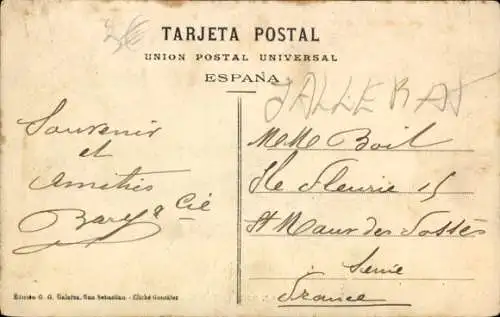 TARJETA POSTAL
UNION POSTAL UNIVERSAL
ESPAÑA
Souvenir
et
Amitiés
& Cie
Boit
Ile Fleurie 15
St Maur des Fossés
Seine
France
Edición G. G. Galarza, San Sebastian - Cliché González